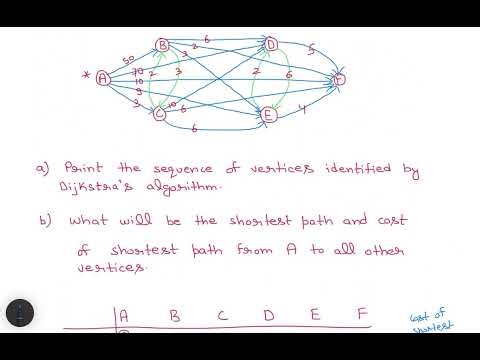 50
6
2
3
5
B
D
* A
70
2
3
2
6
F
10
9
3
10
6
C
E
4
6
a) Print the sequence of vertices identified by
Dijkstra's algorithm.
b) What will be the shortest path and cost
of shortest path from A to all other
vertices.
A B C D E F
Cost of
shortest